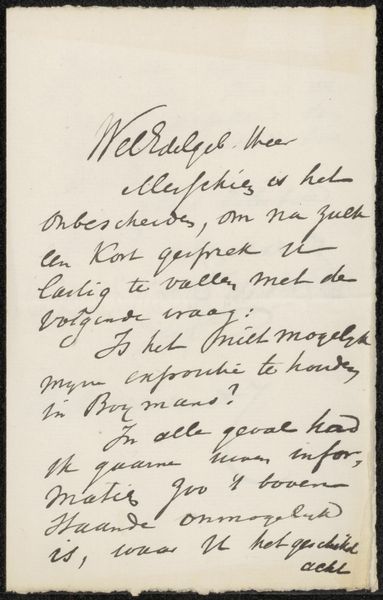 WelEdelgeb. Heer
Misschien is het
onbescheiden, om na zulk
een kort gesprek U
lastig te vallen met de
volgende vraag:
Is het niet mogelijk
myne expositie te houden
in Boymans?
In alle geval had
ik gaarne uwen infor,
matie, zoo 't boven
staande onmogelijk
is, waar U het geschikt
acht